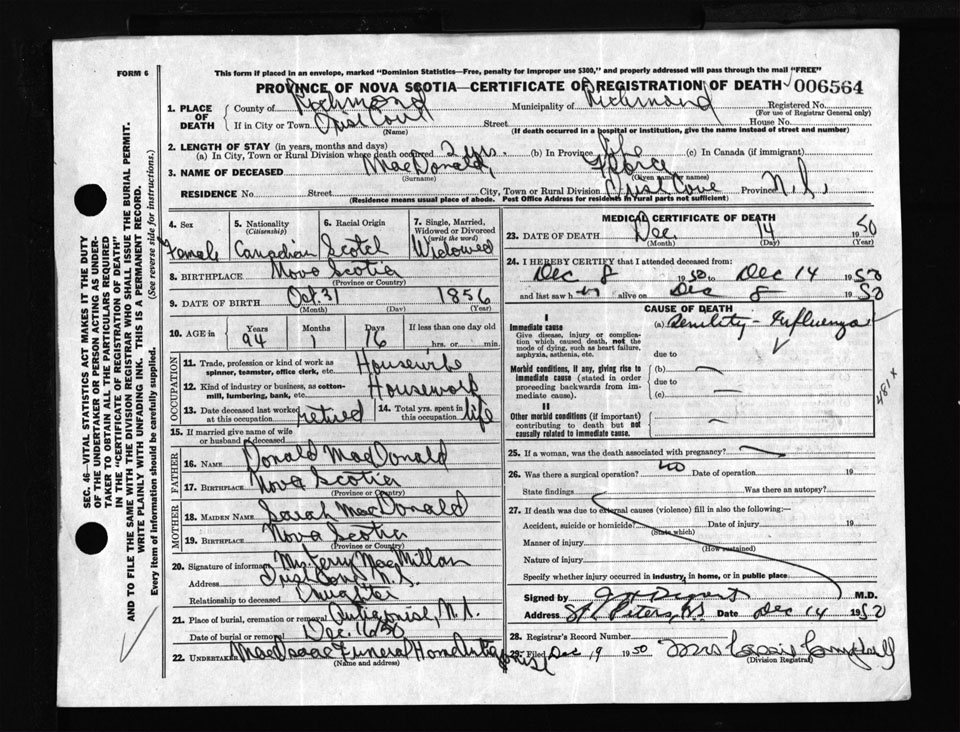 FORM 6
This form if placed in an envelope, marked "Dominion Statistics—Free, penalty for improper use $300," and properly addressed will pass through the mail "FREE"
PROVINCE OF NOVA SCOTIA—CERTIFICATE OF REGISTRATION OF DEATH 006564
1. PLACE OF DEATH
County of Richmond Municipality of Richmond Registered No.
(For use of Registrar General only)
If in City or Town Street House No.
(Name) (If death occurred in a hospital or institution, give the name instead of street and number)
2. LENGTH OF STAY (in years, months and days)
(a) In City, Town or Rural Division where death occurred 2 yrs. (b) In Province life (c) In Canada (if immigrant)
3. NAME OF DECEASED MacDonald,
(Surname) (Given name or names)
RESIDENCE No. Street City, Town or Rural Division Cove Province N.S.
(Residence means usual place of abode. Post Office Address for residents in rural parts not sufficient)
4. Sex Female
5. Nationality (Citizenship) Canadian
6. Racial Origin Scotch
7. Single, Married, Widowed or Divorced (write the word) Widowed
8. BIRTHPLACE Nova Scotia
(Province or Country)
9. DATE OF BIRTH Oct. 31 1856
(Month) (Day) (Year)
10. AGE in Years 94 Months 1 Days 16 If less than one day old hrs. or min.
OCCUPATION
11. Trade, profession or kind of work as spinner, teamster, office clerk, etc. Housewife
12. Kind of industry or business, as cotton-mill, lumbering, bank, etc. Housework
13. Date deceased last worked at this occupation retired
14. Total yrs. spent in this occupation life
15. If married give name of wife or husband of deceased
FATHER
16. NAME Donald MacDonald
17. BIRTHPLACE Nova Scotia
(Province or Country)
MOTHER
18. MAIDEN NAME Sarah MacDonald
19. BIRTHPLACE Nova Scotia
(Province or Country)
20. Signature of informant Mrs Jerry MacMillan
Address Cove N.S.
Relationship to deceased Daughter
21. Place of burial, cremation or removal Antigonish, N.S.
Date of burial or removal Dec. 16 50
22. UNDERTAKER MacIsaac Funeral Home Antigonish
(Name and address)
MEDICAL CERTIFICATE OF DEATH
23. DATE OF DEATH Dec. 14 1950
(Month) (Day) (Year)
24. I HEREBY CERTIFY that I attended deceased from:
Dec 8 1950 to Dec 14 1950
and last saw her alive on Dec 8 1950
CAUSE OF DEATH
I
Immediate cause
Give disease, injury or complication which caused death, not the mode of dying, such as heart failure, asphyxia, asthenia, etc.
(a) Senility - Influenza
due to
Morbid conditions, if any, giving rise to immediate cause (stated in order proceeding backwards from immediate cause).
(b)
due to
(c)
481 X
II
Other morbid conditions (if important) contributing to death but not causally related to immediate cause.
25. If a woman, was the death associated with pregnancy?
26. Was there a surgical operation? No Date of operation 19
State findings Was there an autopsy?
27. If death was due to external causes (violence) fill in also the following:—
Accident, suicide or homicide? Date of injury 19
(State which)
Manner of injury
(How sustained)
Nature of injury
Specify whether injury occurred in industry, in home, or in public place
Signed by M.D.
Address St. Peters, N.S. Date Dec 14 1950
28. Registrar's Record Number
29. Filed Dec, 19 1950 Mrs Campbell
(Division Registrar)
SEC. 46—VITAL STATISTICS ACT MAKES IT THE DUTY
OF THE UNDERTAKER OR PERSON ACTING AS UNDER-
TAKER TO OBTAIN ALL THE PARTICULARS REQUIRED
IN THE "CERTIFICATE OF REGISTRATION OF DEATH"
AND TO FILE THE SAME WITH THE DIVISION REGISTRAR WHO SHALL ISSUE THE BURIAL PERMIT.
WRITE PLAINLY WITH UNFADING INK. THIS IS A PERMANENT RECORD.
Every item of information should be carefully supplied. (See reverse side for instructions.)